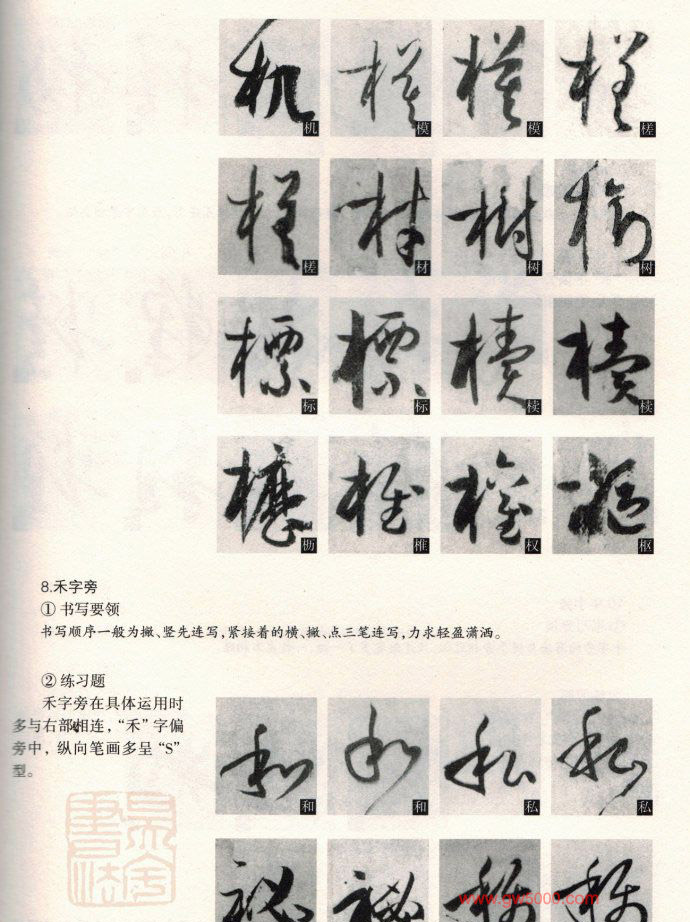 机 模 模 槎
槎 材 树 树
标 标 椟 椟
枥 椎 权 枢
8.禾字旁
① 书写要领
书写顺序一般为撇、竖先连写,紧接着的横、撇、点三笔连写,力求轻盈潇洒。
② 练习题
禾字旁在具体运用时
多与右部相连,“禾”字偏
旁中,纵向笔画多呈“S”
型。
和 和 私 私